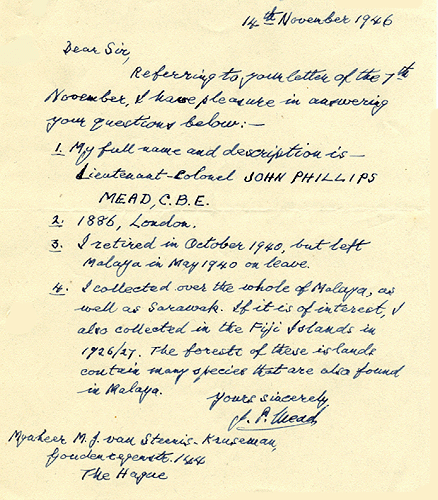 14th November 1946
Dear Sir,
Referring to your letter of the 7th
November, I have pleasure in answering
your questions below:—
1. My full name and description is—
Lieutenant-Colonel JOHN PHILLIPS
MEAD, C.B.E.
2. 1886, London.
3. I retired in October 1940, but left
Malaya in May 1940 on leave.
4. I collected over the whole of Malaya, as
well as Sarawak. If it is of interest, I
also collected in the Fiji Islands in
1926/27. The forests of these islands
contain many species that are also found
in Malaya.
Yours sincerely,
J. P. Mead
M. J. van Steenis-Kruseman,
144
The Hague